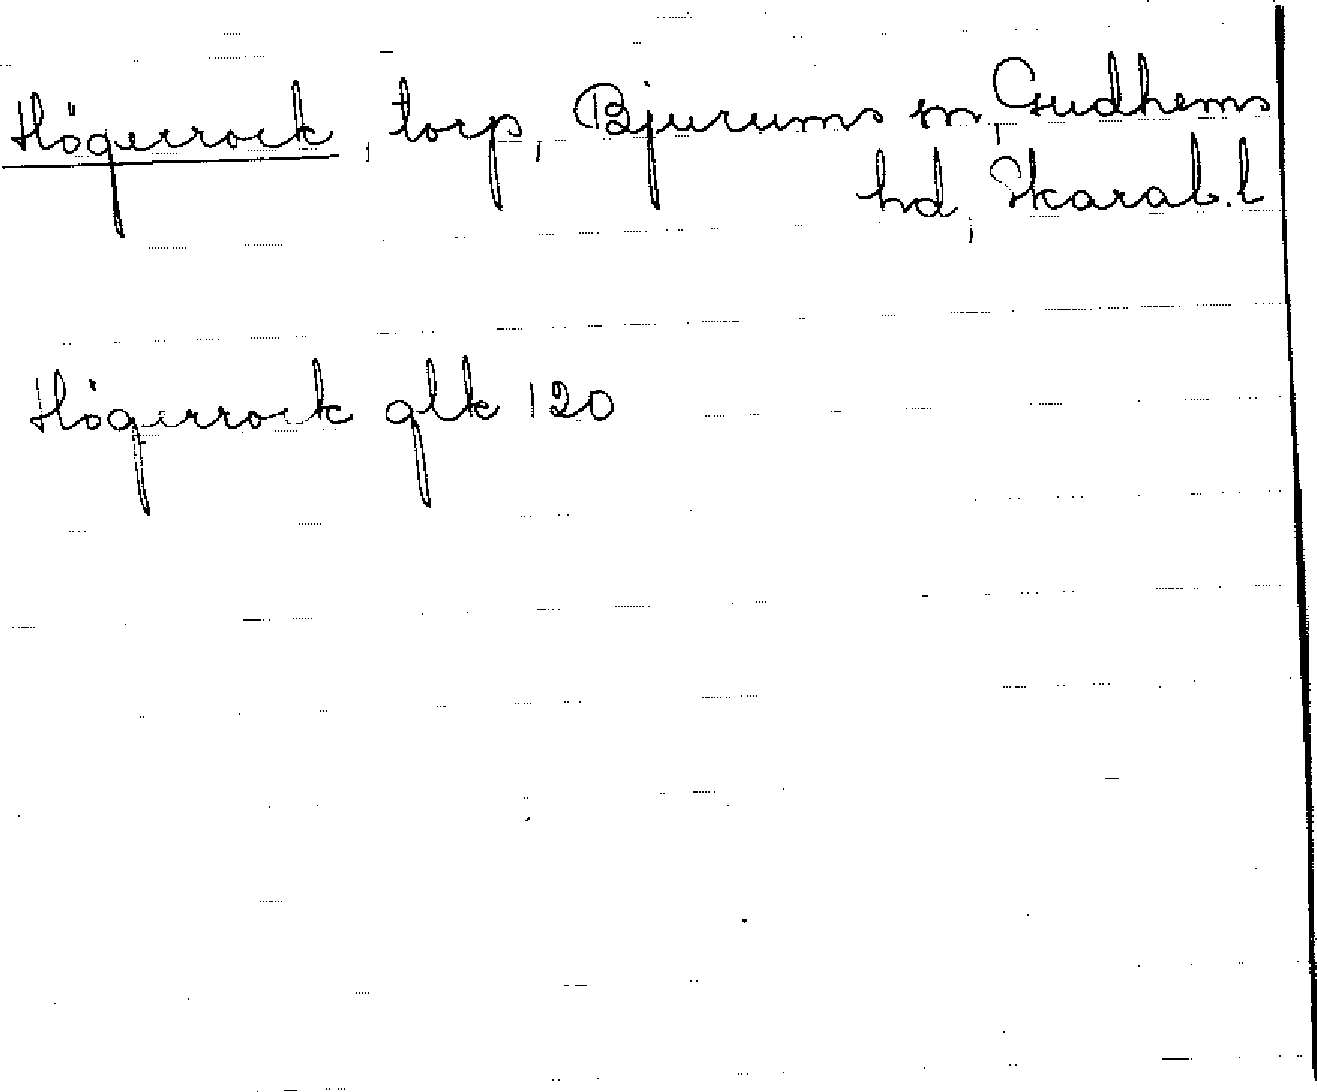 Högerrock, torp, Bjurums sn, Gudhems
hd, Skarab. l
Högerrock glk 120